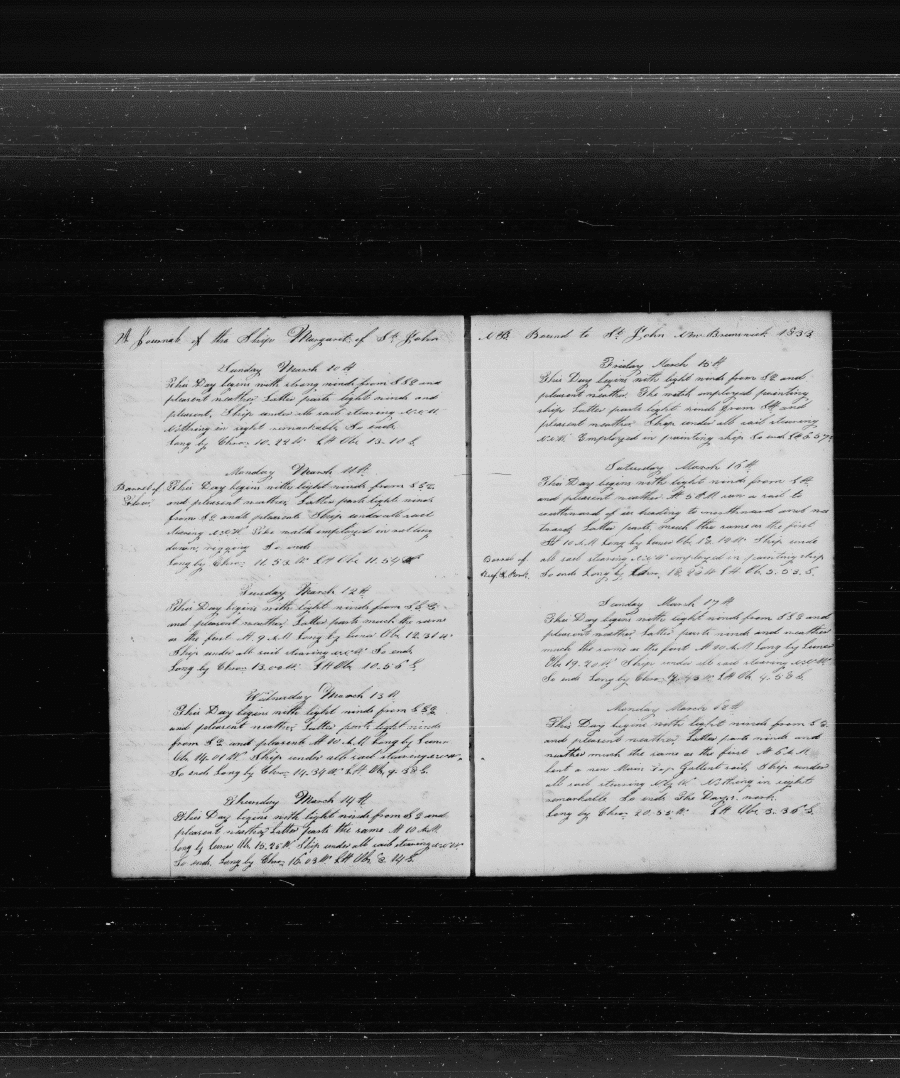 A Journal of the Ship Margaret of St John
Sunday March 10th
This Day begins with strong winds from SSE and
pleasent weather Latter parts light winds and
pleasent, Ship under all sail steering NWW
Nothing in sight remarkable So ends
Long by Chro; 10.22 W Lt Ob 13.10 S
Monday March 11th
Barrel of This Day begins with light winds from SSE
and pleasent weather, Latter parts light winds
from SE and pleasent Ship under all sail
steering NWW The watch employed in
down rigging So ends
Long by Chro; 11.53 W Lt Ob 11.54 S
Tuesday March 12th
This Day begins with light winds from SSE
and pleasent weather Latter parts much the same
as the first At 9 AM Long by Lunar Ob 12.31 W
Ship under all sail steering NWW So ends
Long by Chro; 13.00 W Lt Ob 10.56 S
Wednesday March 13th
This Day begins with light winds from SSE
and pleasent weather, Latter parts light winds
from SE and pleasent At 10 AM Long by Lunar
Ob 14.01 W Ship under all sail steering NWW
So ends Long by Chro; 14.34 W Lt Ob 9.58 S
Thursday March 14th
This Day begins with light winds from SE and
pleasent weather Latter parts the same At 10 AM
Long by Lunar Ob 15.25 W Ship under all sail steering NWW
So ends Long by Chro; 16.03 W Lt Ob 8.14 S
NB Bound to St John New Brunswick 1833
Friday March 15th
This Day begins with light winds from SE and
pleasent weather. The watch employed painting
ship Latter parts light winds from and
pleasent weather Ship under all sail steering
NWW Employed in painting ship So ends Lt 6.57 S
Saturday March 16th
This Day begins with light winds from
and pleasent weather At 5 AM saw a sail to
southward of us heading to northward and wes
tward, Latter parts much the same as the first
At 10 AM Long by Lunar Ob 18.19 W Ship under
all sail steering NWW employed in painting ship
Barrel of
Beef & Pork So ends Long by Chro; 18.20 W Lt Ob 5.53 S
Sunday March 17th
This Day begins with light winds from SSE and
pleasent weather Latter parts winds and weather
much the same as the first At 10 AM Long by Lunar
Ob 19.20 W Ship under all sail steering NWW
So ends Long by Chro; 19.43 W Lt Ob 4.58 S
Monday March 18th
This Day begins with light winds from SE
and pleasent weather, Latter parts winds and
weather much the same as the first At 5 AM
bent a new Main Top Gallent sail, Ship under
all sail steering Nothing in sight
remarkable So ends The Days work
Long by Chro; 20.35 W Lt Ob 3.36 S